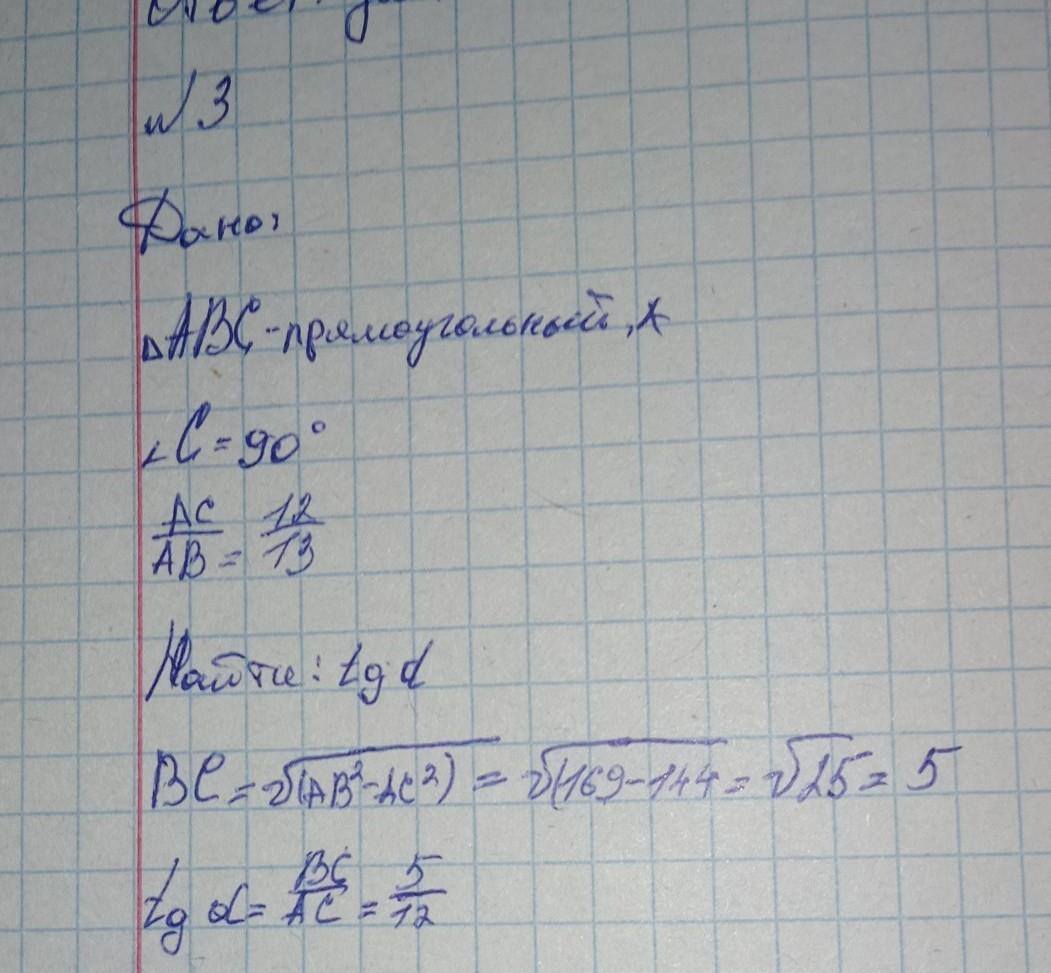 №3
Дано:
△ABC-прямоугольный,
∠C = 90°
AC/AB = 12/13
Найти: tg α
BC = √(AB²-AC²) = √(169-144 = √25 = 5
tg α = BC/AC = 5/12